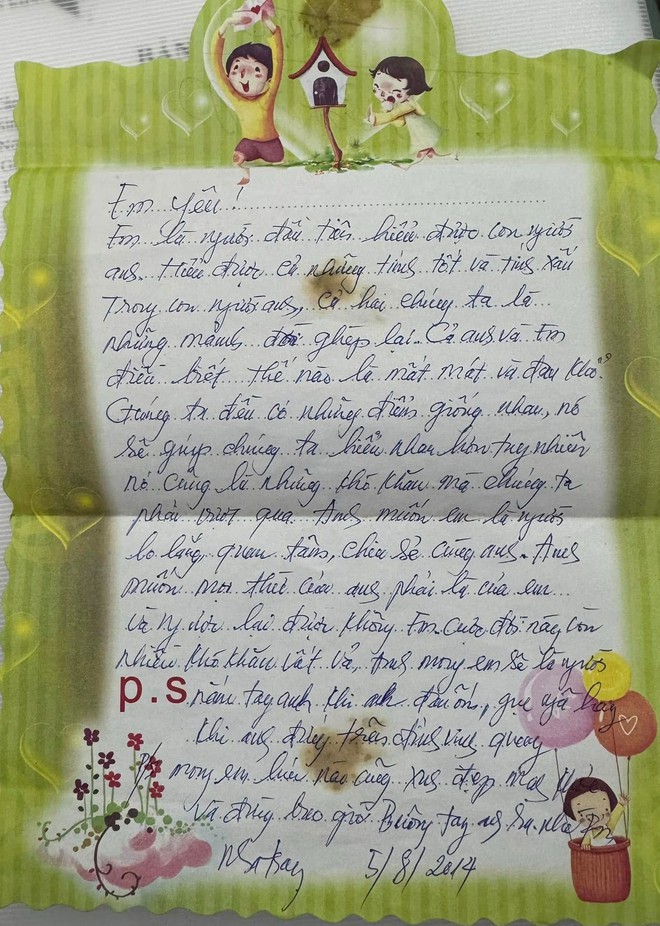 Em yêu!
Em là người đầu tiên hiểu được con người
anh. Hiểu được cả những tính tốt và tính xấu
Trong con người anh, cả hai chúng ta là
những mảnh đời ghép lại. Cả anh và Em
điều biết thế nào là mất mát và đau khổ.
Chúng ta đều có những điểm giống nhau, nó
sẽ giúp chúng ta hiểu nhau hơn tuy nhiên
nó cũng là những khó khăn mà chúng ta
phải vượt qua. Anh muốn em là người
lo lắng, quan tâm, chia sẻ cùng anh. Anh
muốn mọi thứ của anh phải là của em
và ngược lại được không. Em cuộc đời này còn
nhiều khó khăn vất vả, Anh mong em sẽ là người
p.s nắm tay anh khi anh đau ốm, gục ngã hay
khi anh đứng trên đỉnh vinh quang
mong em lúc nào cũng xinh đẹp mạnh
và đừng bao giờ Buông tay anh ra nhé Em
5/8/2014